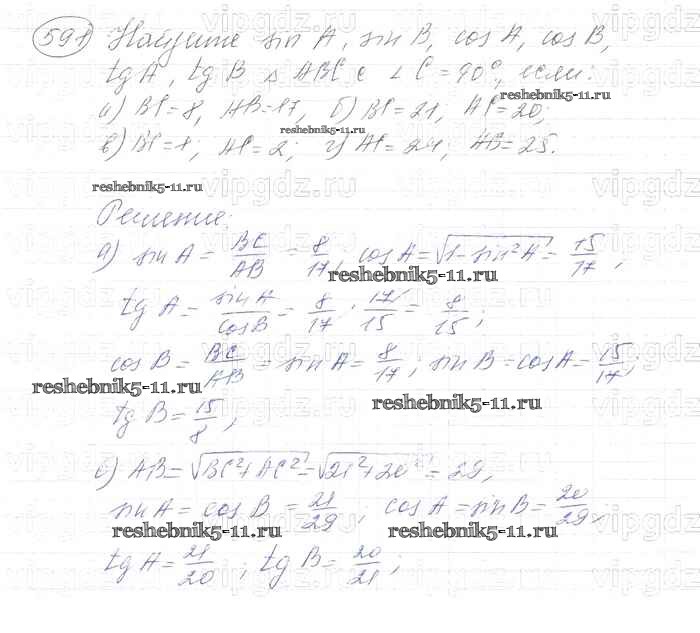 591 Найдите sin A, sin B, cos A, cos B,
tg A, tg B △ ABC с ∠C = 90°, если:
а) BC = 8, AB = 17, б) BC = 21, AC = 20;
в) BC = 1; AC = 2; г) AC = 24; AB = 25.
Решение:
а) sin A = BC/AB = 8/17; cos A = √(1 - sin²A) = 15/17;
tg A = sin A/cos B = 8/17 · 17/15 = 8/15;
cos B = BC/AB = sin A = 8/17; sin B = cos A = 15/17;
tg B = 15/8;
б) AB = √(BC² + AC²) = √(21² + 20²) = 29,
sin A = cos B = 21/29; cos A = sin B = 20/29;
tg A = 21/20; tg B = 20/21;
reshebnik5-11.ru
reshebnik5-11.ru
reshebnik5-11.ru
reshebnik5-11.ru
reshebnik5-11.ru
reshebnik5-11.ru
reshebnik5-11.ru
reshebnik5-11.ru
vipgdz.ru